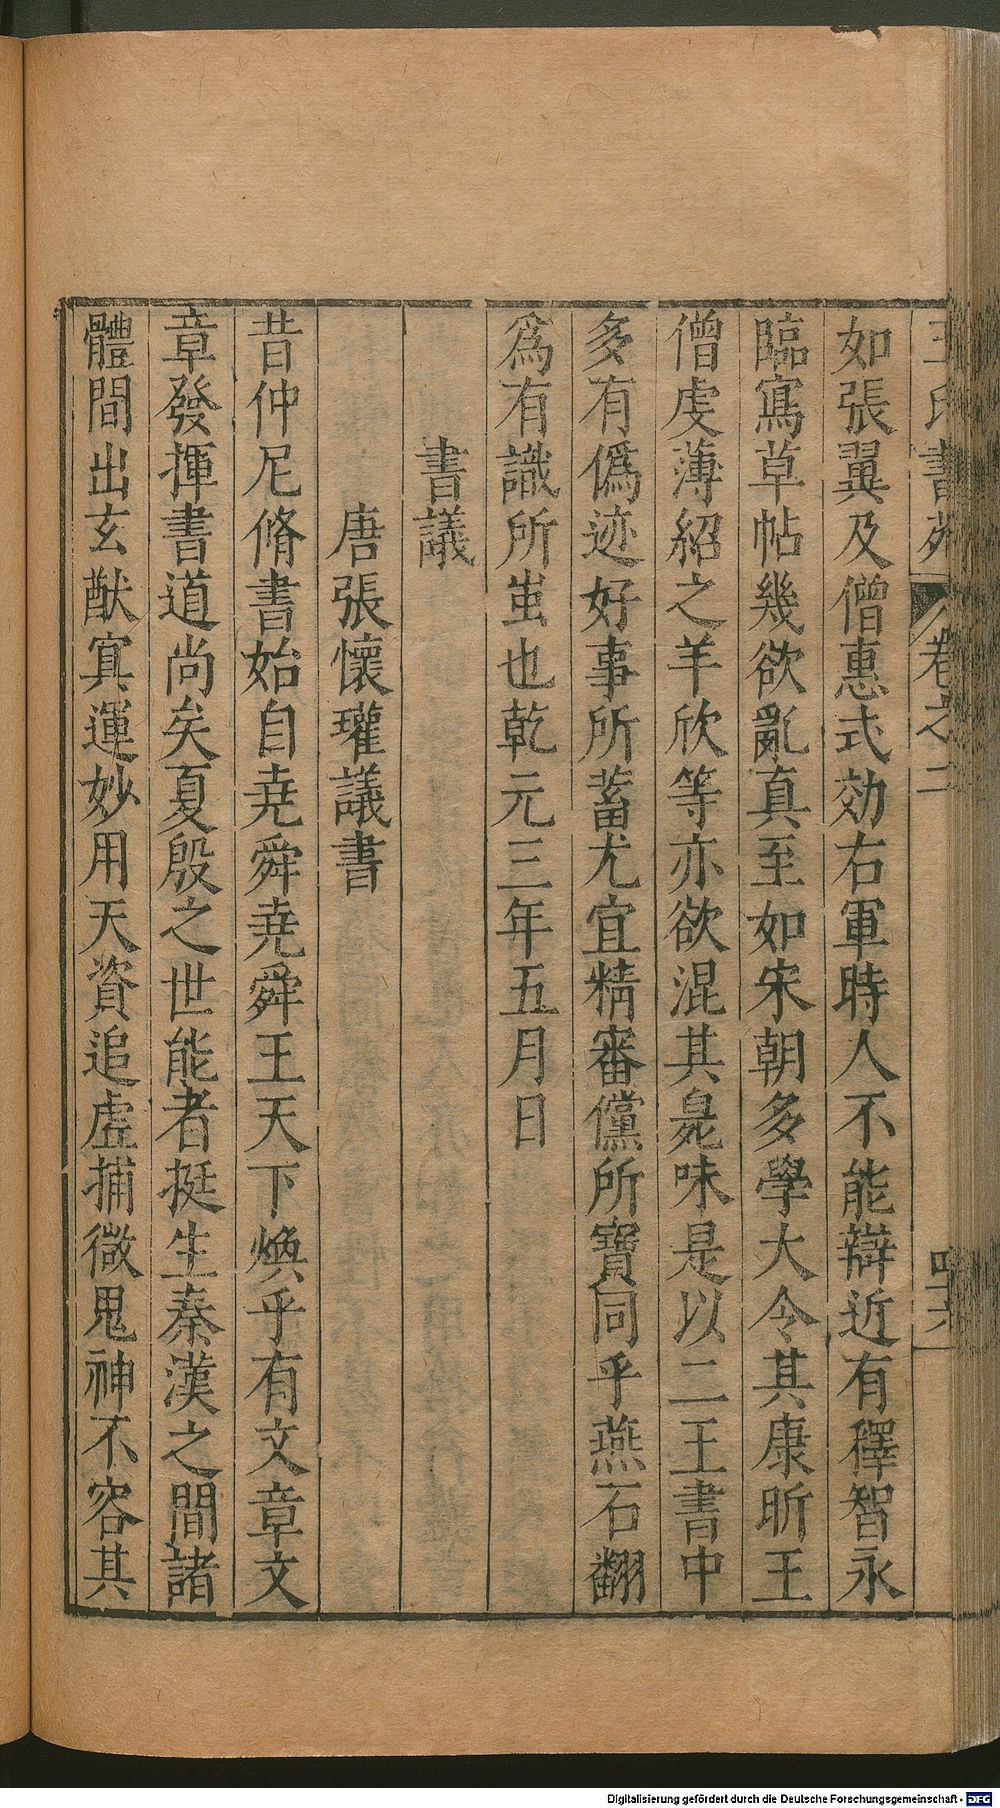 王氏書苑 卷之二 四十六
如張翼及僧惠式効右軍時人不能辯近有釋智永
臨寫草帖幾欲亂真至如宋朝多學大令其康昕王
僧虔薄紹之羊欣等亦欲混其臭味是以二王書中
多有僞迹好事所蓄尤宜精審儻所寶同乎燕石翻
為有識所蚩也乾元三年五月日
書議
唐張懷瓘議書
昔仲尼脩書始自堯舜堯舜王天下煥乎有文章文
章發揮書道尚矣夏殷之世能者挺生秦漢之間諸
體間出玄猷寘運妙用天資追虛捕微鬼神不容其
Digitalisierung gefördert durch die Deutsche Forschungsgemeinschaft - DFG